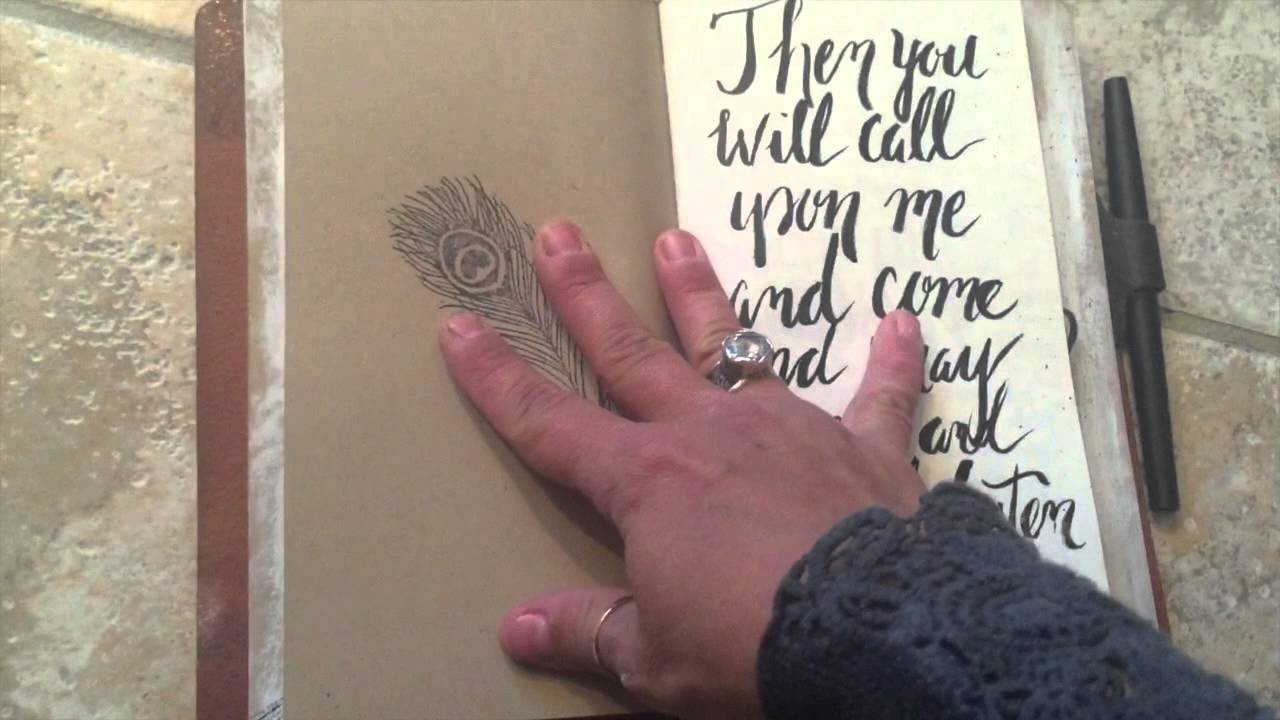 Then you
will call
upon me
and come
and pray
and
listen